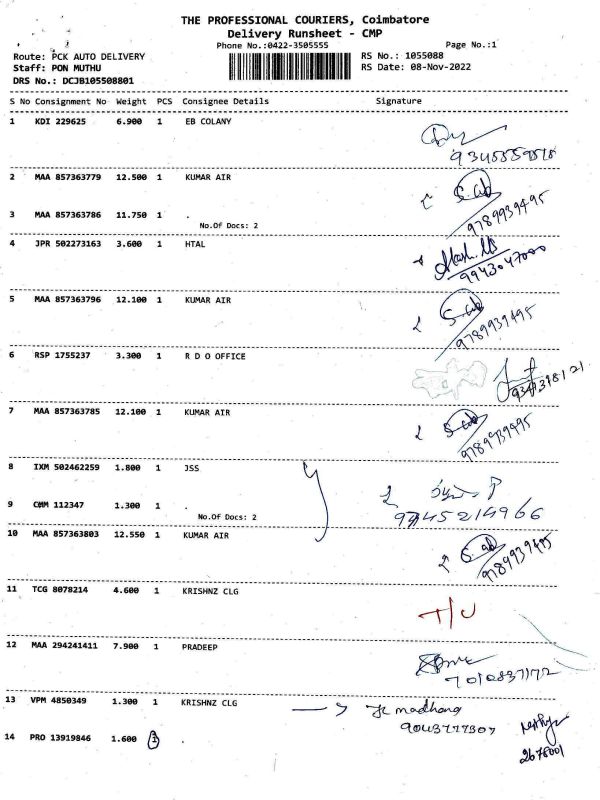 THE PROFESSIONAL COURIERS, Coimbatore
Delivery Runsheet - CMP
Phone No.:0422-3505555
Page No.:1
Route: PCK AUTO DELIVERY
RS No.: 1055088
Staff: PON MUTHU
RS Date: 08-Nov-2022
DRS No.: DCJB105508801
S No Consignment No Weight PCS Consignee Details Signature
1 KDI 229625 6.900 1 EB COLANY
2 MAA 857363779 12.500 1 KUMAR AIR
9789939495
3 MAA 857363786 11.750 1 .
No.Of Docs: 2
4 JPR 502273163 3.600 1 HTAL
9943047000
5 MAA 857363796 12.100 1 KUMAR AIR
9789939495
6 RSP 1755237 3.300 1 R D O OFFICE
7 MAA 857363785 12.100 1 KUMAR AIR
9789939495
8 IXM 502462259 1.800 1 JSS
9 CHM 112347 1.300 1 .
No.Of Docs: 2
10 MAA 857363803 12.550 1 KUMAR AIR
9789939495
11 TCG 8078214 4.600 1 KRISHNZ CLG
T/U
12 MAA 294241411 7.900 1 PRADEEP
7010837172
13 VPM 4850349 1.300 1 KRISHNZ CLG
14 PRO 13919846 1.600 1